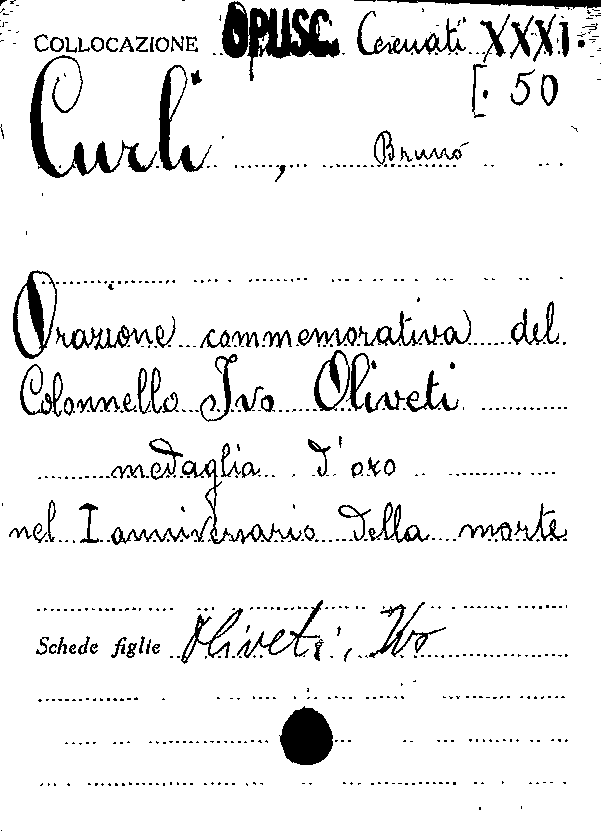 COLLOCAZIONE OPUSC. Cesenati XXXI.
[. 50
Curli, Bruno
Orazione commemorativa del
Colonnello Ivo Oliveti
medaglia d'oro
nel I anniversario della morte
Schede figlie Oliveti, Ivo